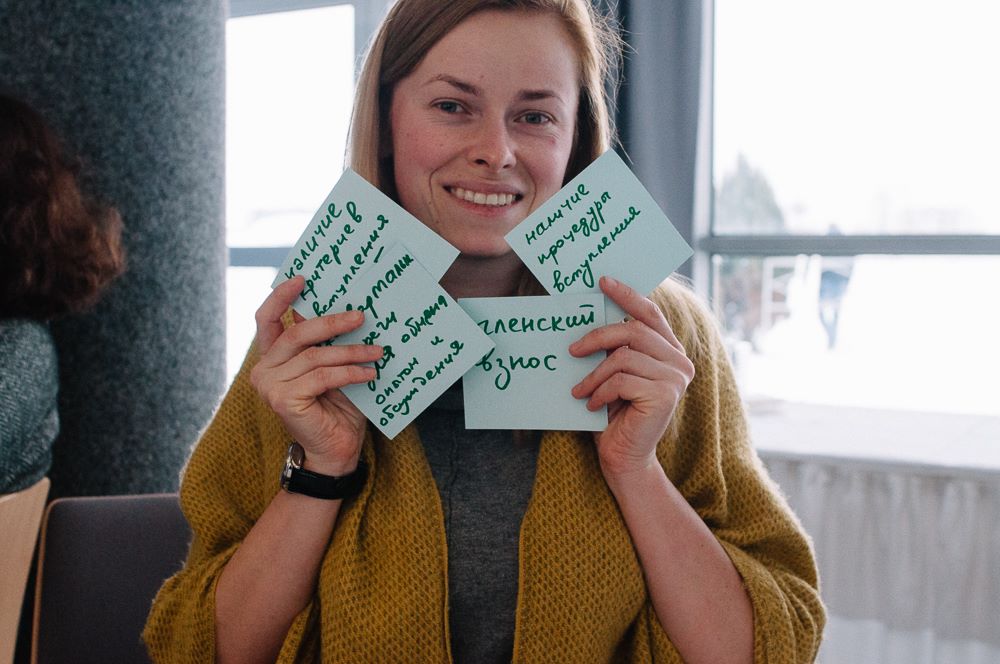 наличие
критериев
вступления
для обмена
опытом и
обсуждения
наличие
процедуры
вступления
членский
взнос